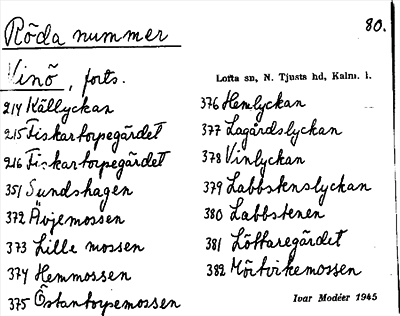 Röda nummer
80.
Vinö, forts.
Lofta sn, N. Tjusts hd, Kalm. l.
214 Källyckan
215 Fiskartorpegärdet
216 Fiskartorpegärdet
351 Sundshagen
372 Ävjemossen
373 Lille mossen
374 Hemmossen
375 Östantorpemossen
376 Hemlyckan
377 Lagårdslyckan
378 Vinlyckan
379 Labbstenslyckan
380 Labbstenen
381 Löttaregärdet
382 Mörtvikemossen
Ivar Modéer 1945